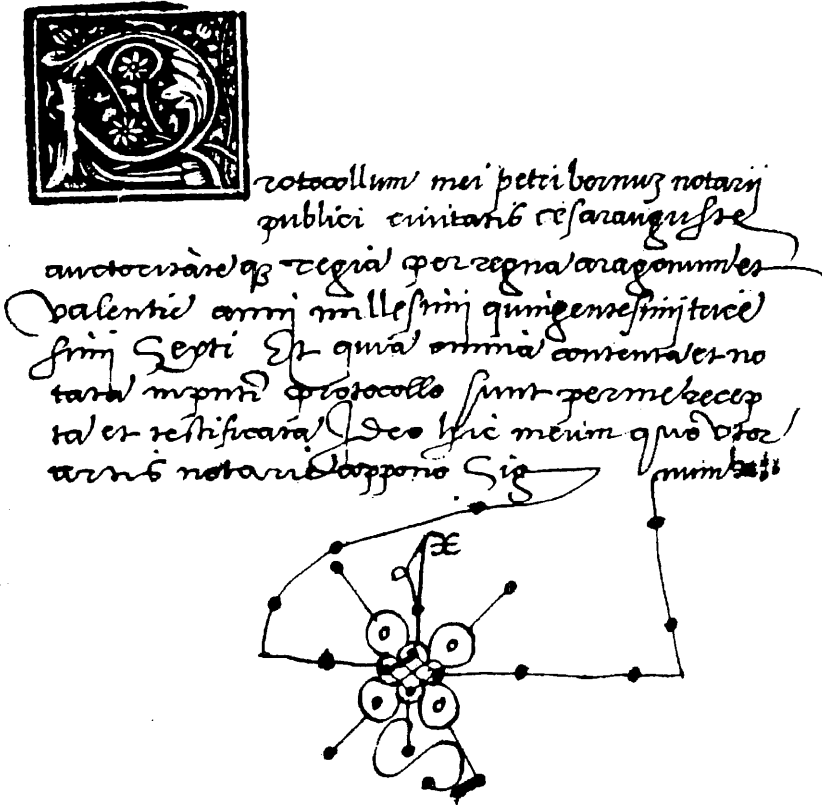 Protocollum mei petri bernuz notarii
publici civitatis cesarauguste
auctoritate q3 regia per regna aragonum et
valentie anni millesimi quingentesimi trice
simi Septi Et quia omnia contenta et no
tata in pnti protocollo sunt per me recep
ta et testificata Ideo hic meum quo utor
artis notarie appono Sig num